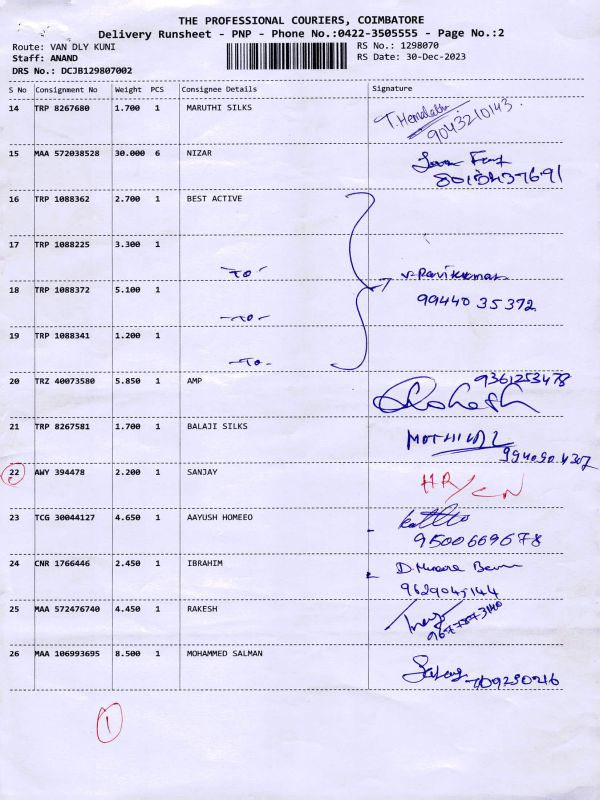 THE PROFESSIONAL COURIERS, COIMBATORE
Delivery Runsheet - PNP - Phone No.:0422-3505555 - Page No.:2
Route: VAN DLY KUNI
RS No.: 1298070
Staff: ANAND
RS Date: 30-Dec-2023
DRS No.: DCJB129807002
S No Consignment No Weight PCS Consignee Details Signature
14 TRP 8267680 1.700 1 MARUTHI SILKS T. Hemalatha
9043210143
15 MAA 572038528 30.000 6 NIZAR
16 TRP 1088362 2.700 1 BEST ACTIVE
17 TRP 1088225 3.300 1
-To- v. Ravikumar
18 TRP 1088372 5.100 1 99440 35372
-To-
19 TRP 1088341 1.200 1
-To-
20 TRZ 40073580 5.850 1 AMP 9361253478
21 TRP 8267581 1.700 1 BALAJI SILKS MOTHILAL
22 AWY 394478 2.200 1 SANJAY HR/CN
23 TCG 30044127 4.650 1 AAYUSH HOMEEO
9500669678
24 CNR 1766446 2.450 1 IBRAHIM
9629045144
25 MAA 572476740 4.450 1 RAKESH
26 MAA 106993695 8.500 1 MOHAMMED SALMAN
1